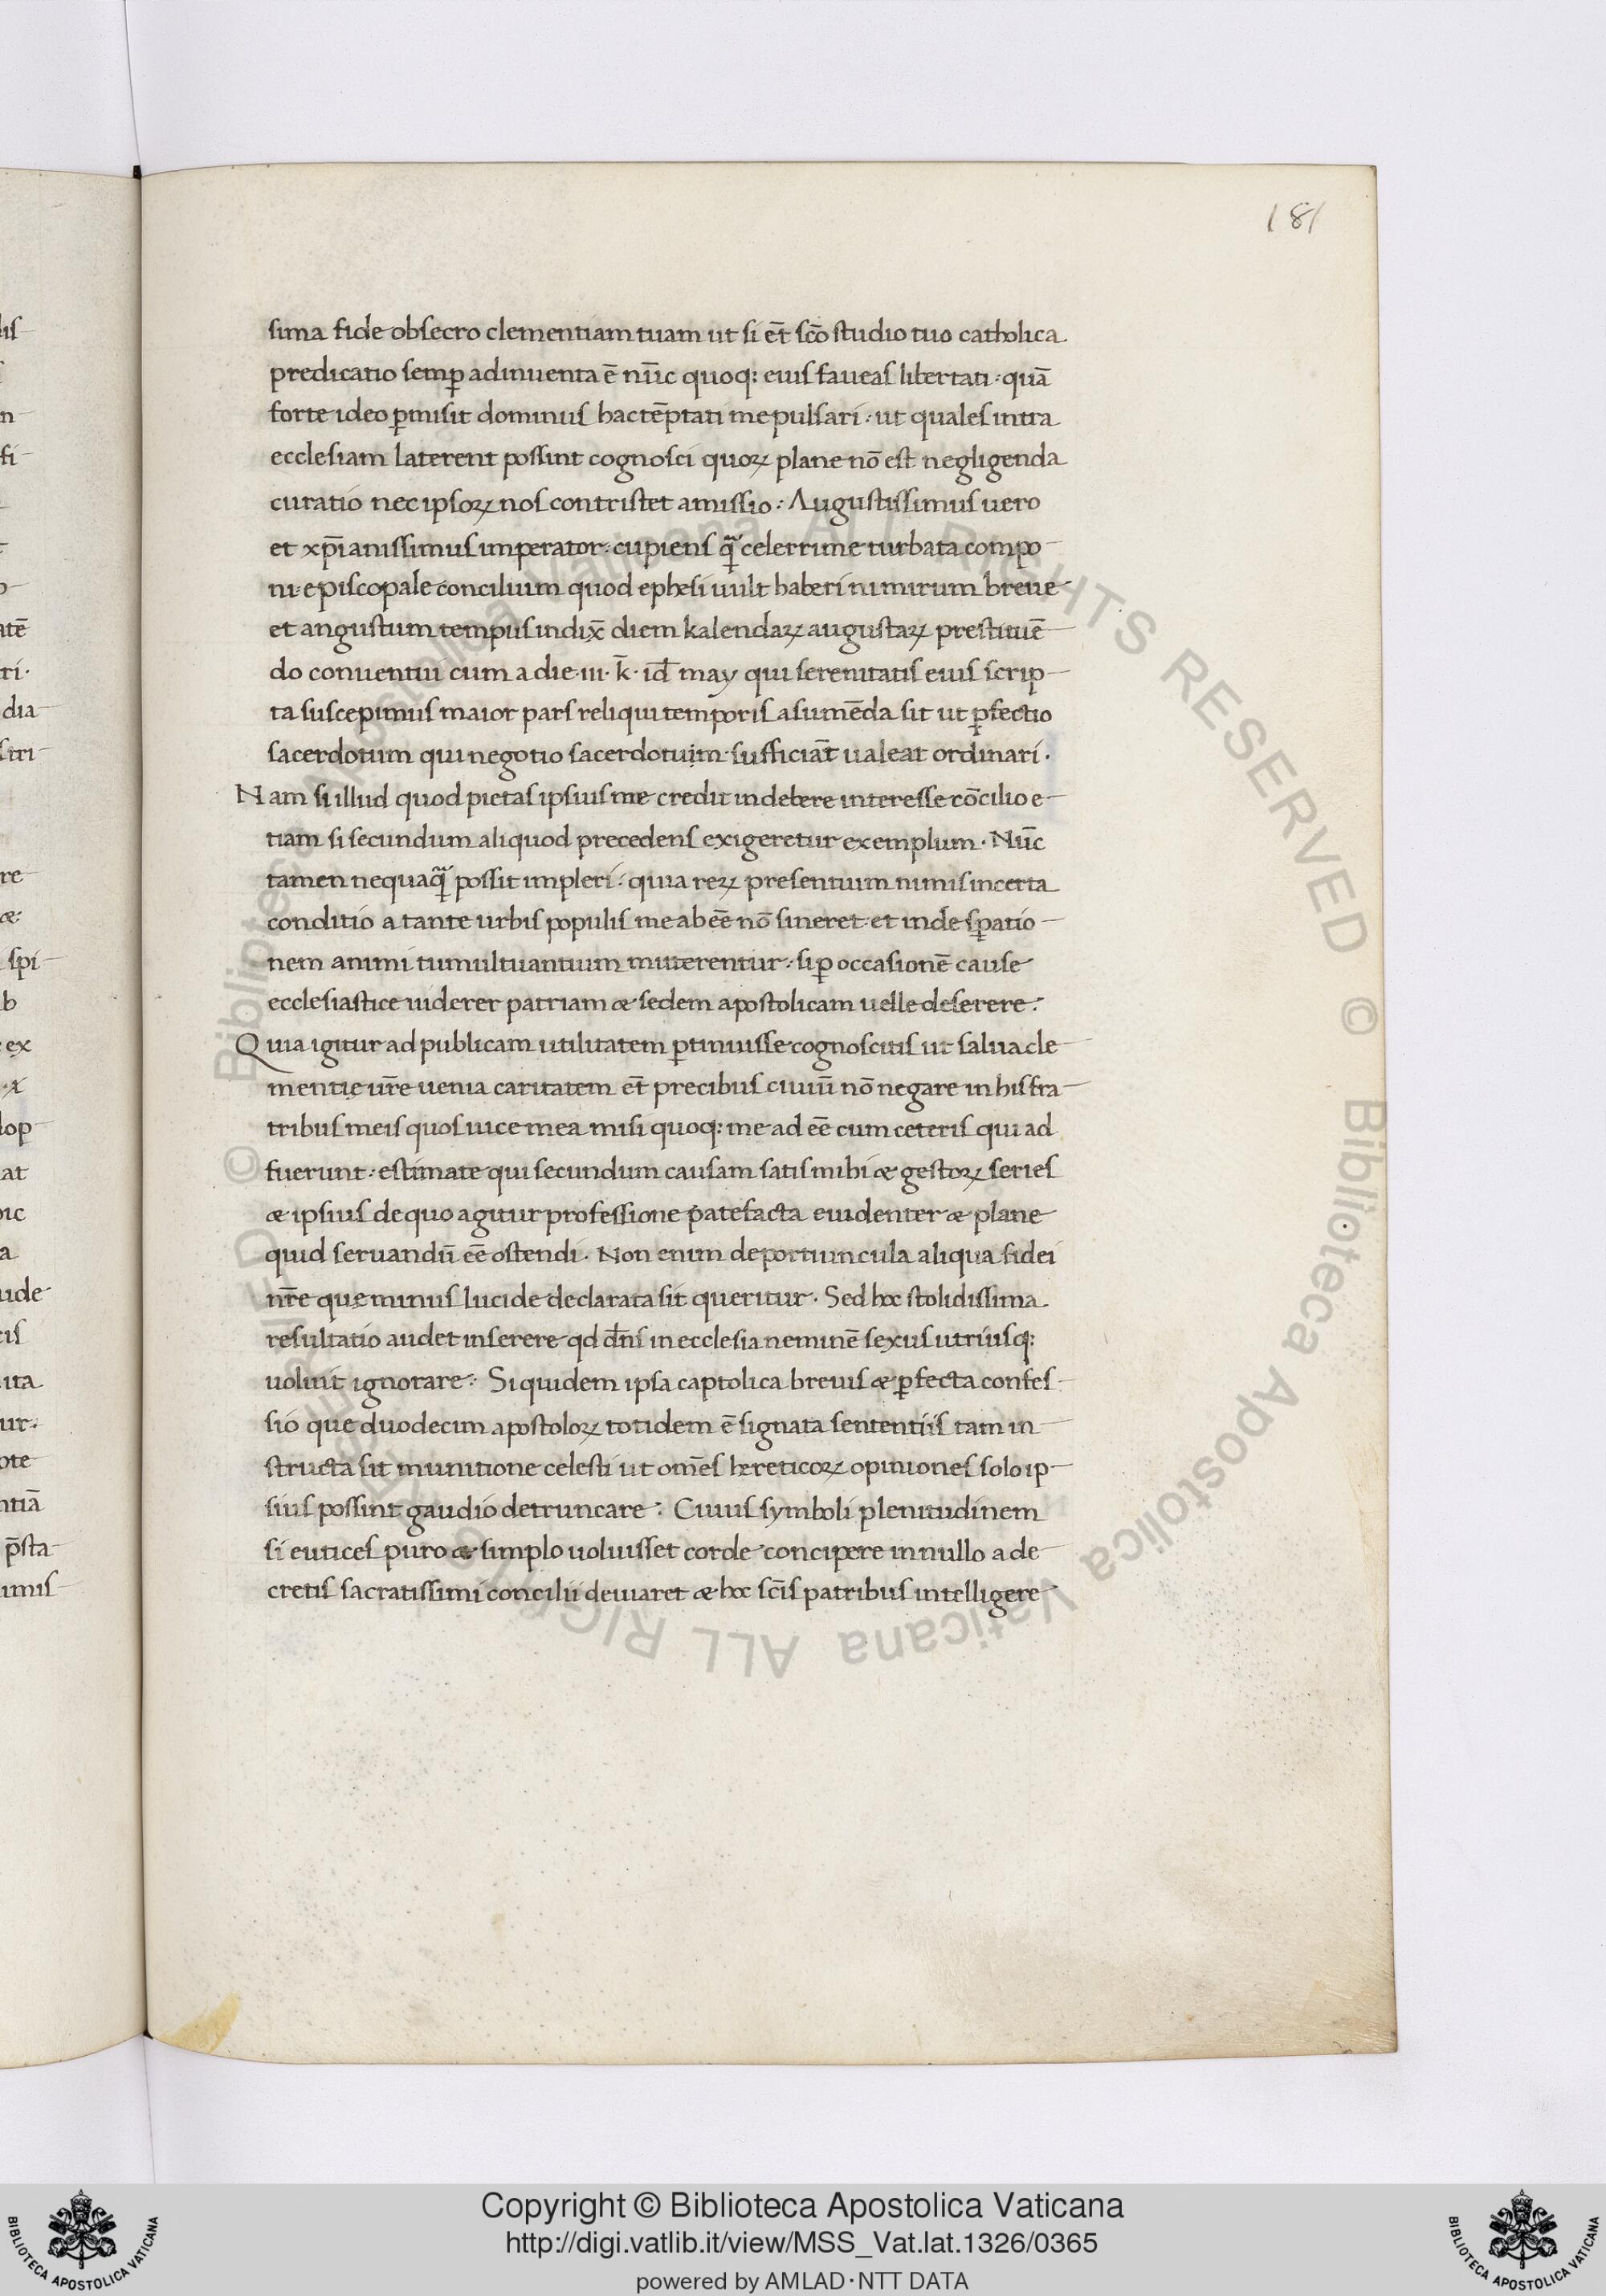 181
sima fide obsecro clementiam tuam ut si et̄ sc̄o studio tuo catholica
predicatio semꝑ adinuenta ē nūc quoq; eius faueas libertati: quā
forte ideo ꝑmisit dominus hactēptati me pulsari: ut quales intra
ecclesiam laterent possint cognosci quoꝝ plane nō est negligenda
curatio nec ipsoꝝ nos contristet amissio: Augustissimus uero
et xp̄ianissimus imperator: cupiens qᷓ celerrime turbata compo
ni: episcopale concilium quod ephesi uult haberi nimirum breue
et angustum tempus indix̄ diem kalendaꝝ augustaꝝ prestituē
do conuentui cum a die .iii. k̄. id̄ may qui serenitatis eius scrip
ta suscepimus maior pars reliqui temporis asumēda sit ut ꝑfectio
sacerdotum qui negotio sacerdotuim sufficiāt ualeat ordinari.
Nam si illud quod pietas ipsius me credit in debere interesse cōcilio e
tiam si secundum aliquod precedens exigeretur exemplum. Nūc
tamen nequaqᷓ possit impleri: quia reꝝ presentium nimis incerta
conditio a tante urbis populis me ab eē nō sineret et inde sꝑatio
nem animi tumultuantium muterentur: si ꝑ occasionē cause
ecclesiastice uiderer patriam æ sedem apostolicam uelle deserere:
Quia igitur ad publicam utilitatem ꝑtinuisse cognoscitis ut salua cle
mentię ur̄e uenia caritatem et̄ precibus ciuiū nō negare in his fra
tribus meis quos uice mea misi quoq; me ad eē cum ceteris qui ad
fuerunt: estimate qui secundum causam satis mihi æ gestoꝝ series
æ ipsius de quo agitur professione patefacta euidenter æ plane
quid seruandū eē ostendi. Non enim de portiuncula aliqua fidei
nr̄e quę minus lucide declarata sit queritur. Sed hoc stolidissima
resultatio audet inserere qd dn̄s in ecclesia neminē sexus utriusq;
uoluit ignorare: Siquidem ipsa captolica breuis æ ꝑfecta confes
sio que duodecim apostoloꝝ totidem ē signata sententiis tam in
structa sit munitione celesti ut om̄es hereticoꝝ opiniones solo ip
sius possint gaudio detruncare: Cuius symboli plenitudinem
si eutices puro æ simplo uoluisset corde concipere in nullo a de
cretis sacratissimi concilii deuiaret æ hoc sc̄is patribus intelligere
Copyright © Biblioteca Apostolica Vaticana
http://digi.vatlib.it/view/MSS_Vat.lat.1326/0365
powered by AMLAD·NTT DATA